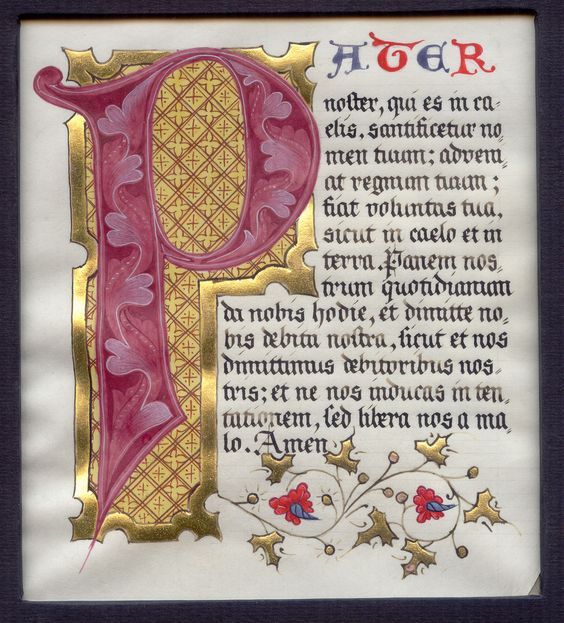 PATER
noster, qui es in ca-
elis, santificetur no-
men tuum; adveni-
at regnum tuum;
fiat voluntas tua,
sicut in caelo et in
terra. Panem nos-
trum quotidianum
da nobis hodie, et dimitte no-
bis debita nostra, sicut et nos
dimittimus debitoribus nos-
tris; et ne nos inducas in ten-
tationem, sed libera nos a ma-
lo. Amen